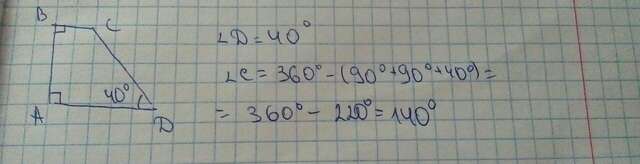 B
C
40°
A
D
∠D = 40°
∠C = 360° - (90° + 90° + 40°) =
= 360° - 220° = 140°